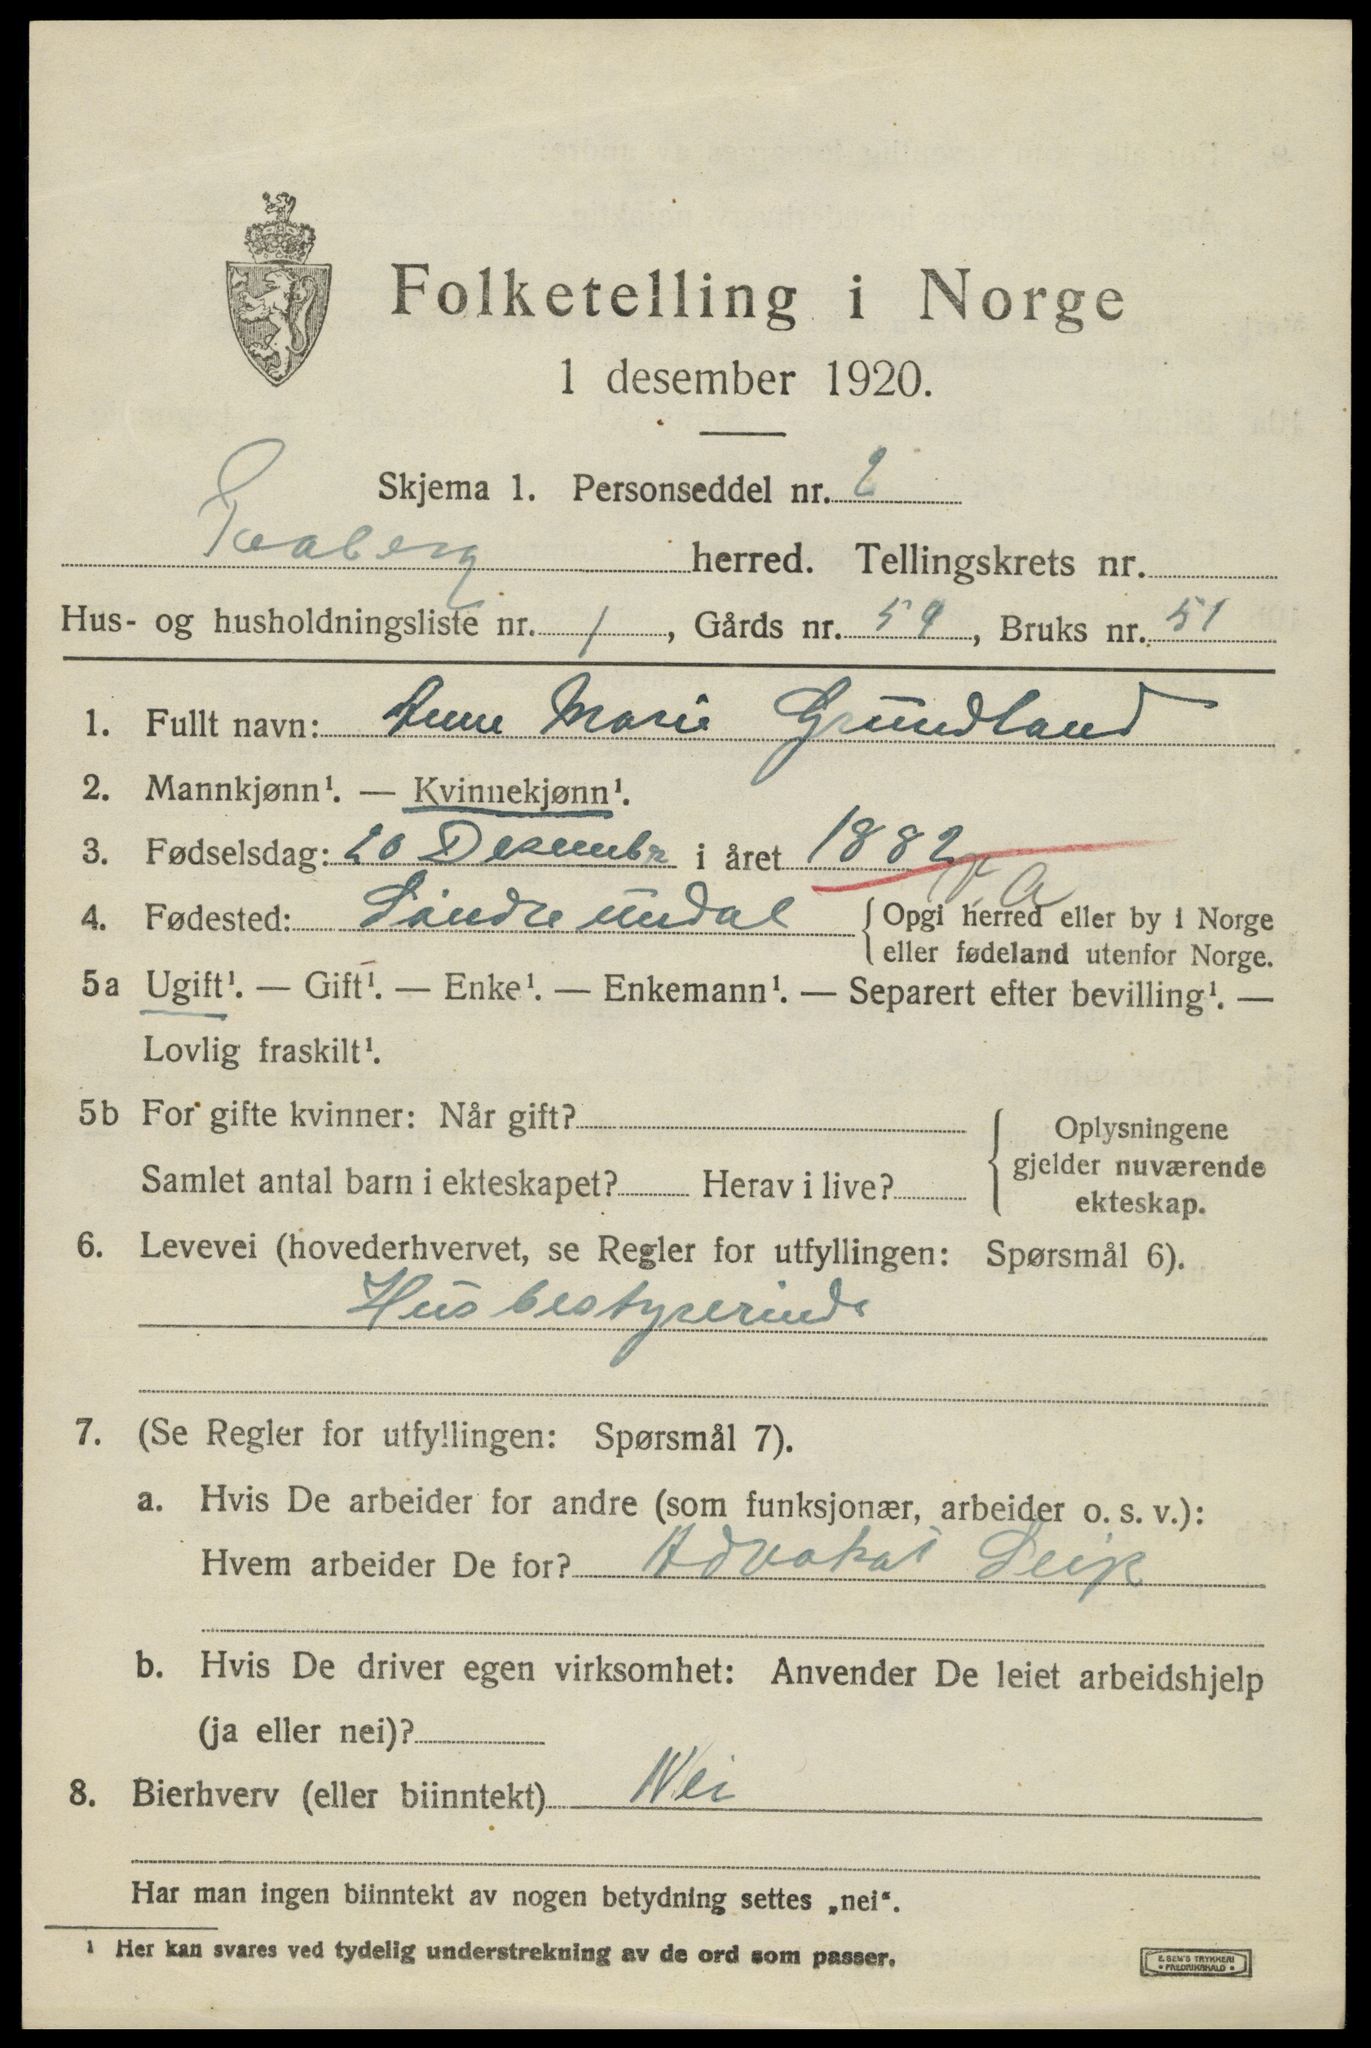 Folketelling i Norge
1 desember 1920.
Skjema 1. Personseddel nr. 2
Faaberg herred. Tellingskrets nr.
Hus- og husholdningsliste nr. 1, Gårds nr. 59, Bruks nr. 51
1. Fullt navn: Anne Marie Grundland
2. Mannkjønn¹. — Kvinnekjønn¹.
3. Fødselsdag: 20 Desember i året 1882
V.A
4. Fødested: Söndre undal { Opgi herred eller by i Norge
eller fødeland utenfor Norge.
5a Ugift¹. — Gift¹. — Enke¹. — Enkemann¹. — Separert efter bevilling¹. —
Lovlig fraskilt¹.
5b For gifte kvinner: Når gift?
Samlet antal barn i ekteskapet? Herav i live?
Oplysningene
gjelder nuværende
ekteskap.
6. Levevei (hovederhvervet, se Regler for utfyllingen: Spørsmål 6).
Husbestyrerinde
7. (Se Regler for utfyllingen: Spørsmål 7).
a. Hvis De arbeider for andre (som funksjonær, arbeider o. s. v.):
Hvem arbeider De for? Advokat
b. Hvis De driver egen virksomhet: Anvender De leiet arbeidshjelp
(ja eller nei)?
8. Bierhverv (eller biinntekt) Nei
Har man ingen biinntekt av nogen betydning settes „nei“.
¹ Her kan svares ved tydelig understrekning av de ord som passer.
E. SEM'S TRYKKERI
• FREDRIKSHALD •